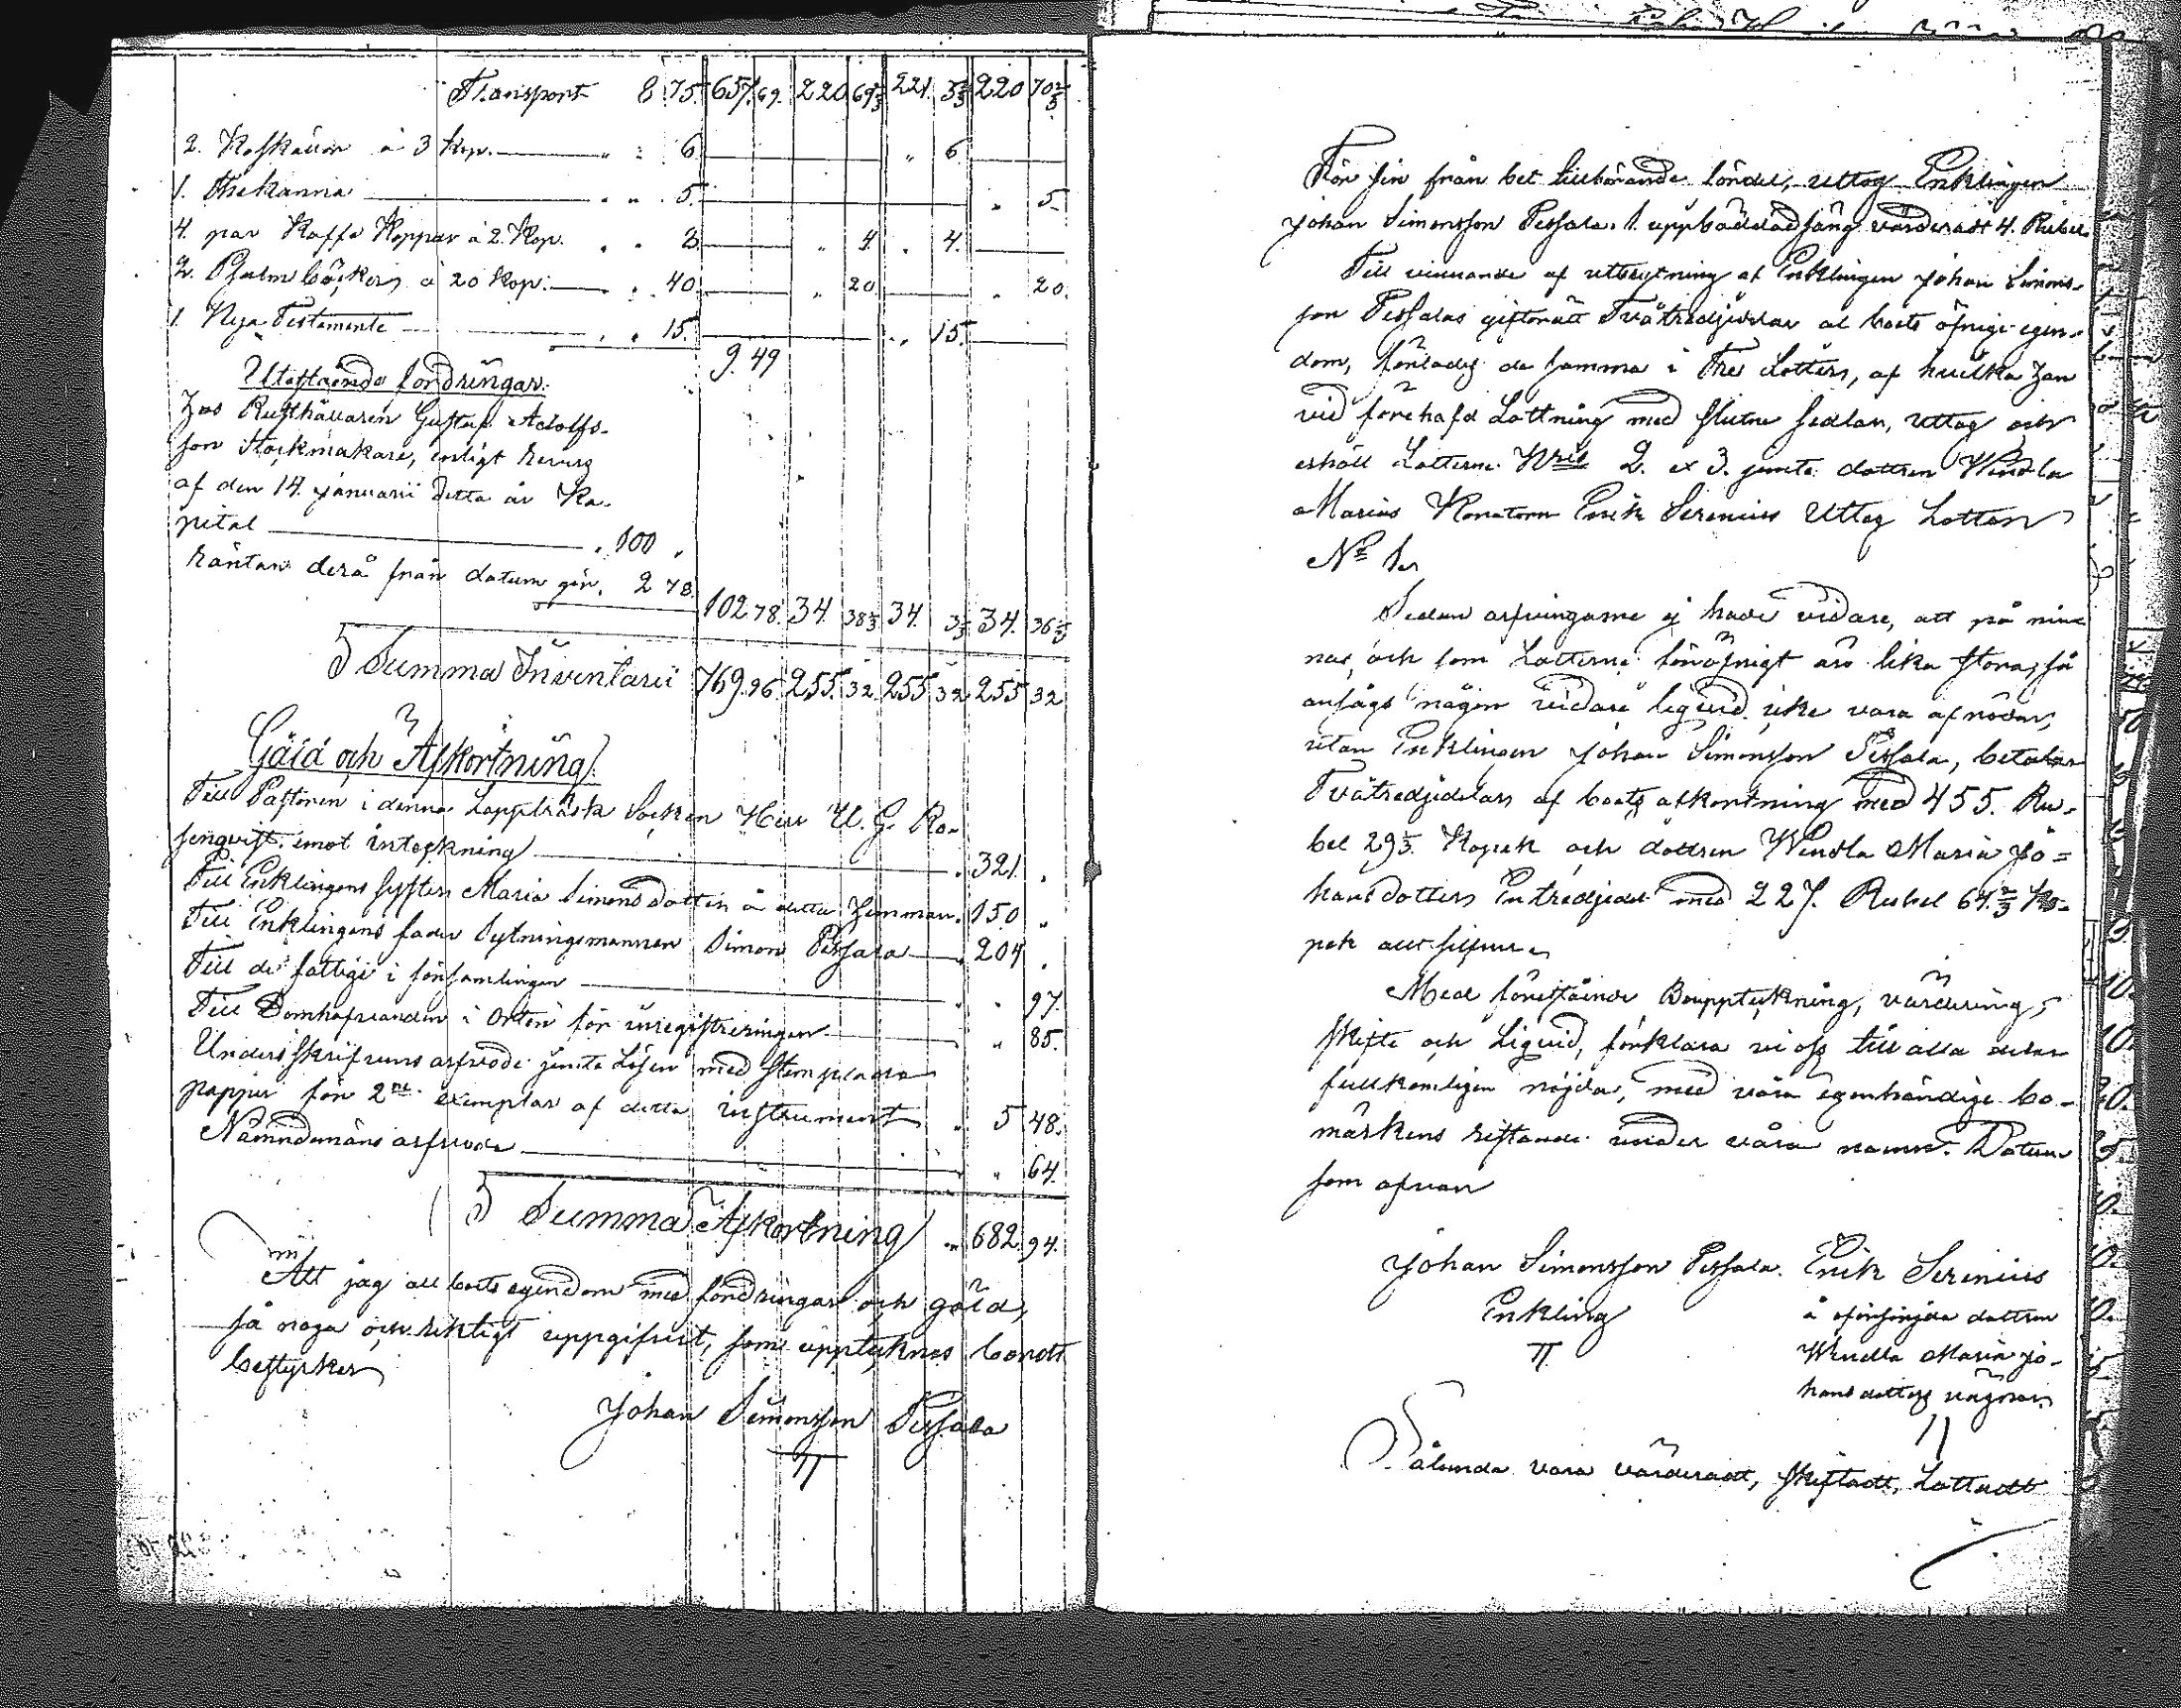 Transport 8. 75. 657. 69. 220 69 2/3 221. 3 2/3 220 70 2/3
2. Kaffkannor à 3 Kop. " " 6. " 6.
1. Thekanna " " 5. " 5.
4. par Kaffe Koppar à 2. Kop. " " 8. " 4. " 4.
2. Psalmböcker à 20 Kop. " " 40. " 20. " 20.
1. Nya Testamente " " 15. " 15.
9. 49
Utestående fordringar.
Hos Rusthållaren Gustaf Adolfs-
son Stockmakare, enligt revers
af den 14. Januarii detta år Ka-
pital " 100 "
räntan derå från datum gör. 2 78.
102 78. 34. 38 2/3 34. 34. 36 2/3
Summa Inventarii 769. 96. 255. 32. 255 32 255 32
Gäld och Afkortning.
Till Pastoren i denna Lappträsk Socken Herr U. G. Ro-
senqvist, emot inteckning " 321. "
Till Enklingens syster Maria Simonsdotter å detta hemman. 150 "
Till Enklingens fader Sytningsmannen Simon Pessala " 204 "
Till de fattige i församlingen " " 97.
Till Domhafvanden i Orten för inregistreringen " 85.
Underskrifvens arfvode jemte Lösen med Stemplade
papper för 2ne exemplar af detta instrument " 5 48.
Nämndemäns arfvode " 64.
Summa Afkortning " 682. 94.
Att jag all boets egendom med fordringar och gäld,
så noga och riktigt uppgifvit, som upptecknas bordt
bestyrker
Johan Simonsson Pessala
För sin från bet tillhörande fördel, uttog Enklingen
Johan Simonsson Pessala 1. uppbäddad säng värderadt 4. Rubel.
Till vinnande af utbrytning af Enklingen Johan Simons-
son Pessalas giftorätt Tvåtredjedelar af boets öfrige egen-
dom, förlades de samma i Tre Lotter, af hvilka han
vid förehafd Lottning med slutne sedlar, uttog och
erhöll Lotterne Nris 2. et 3. jemte dottren Wendla
Marias Kuratorn Erik Serenius Uttog Lotten
No 1.
Sedan arfvingarne ej hade vidare, att på min-
nas, och som Lotterne föröfrigt äro lika stora, så
ansågs någon vidare liqvid icke vara af nöden,
utan Enklingen Johan Simonsson Pessala, betalar
Tvåtredjedelar af boets afkortning med 455. Ru-
bel 29 1/3. Kopek och dottren Wendla Maria Jo-
hansdotters Entredjedel med 227. Rubel 64 2/3 Ko-
pek allt silfver.
Med förestående Bouppteckning, värdering,
skifte och Liqvid, förklara vi oss till alla delar
fullkomligen nöjda, med våra egenhändige bo-
märkens ristande under våra namn. Datum
som ofvan
Johan Simonsson Pessala. Erik Serenius
Enkling å oförsörjda dottren
Wendla Maria Jo-
hansdotters vägnar.
Sålunda vara värderadt, skiftadt, Lottadt